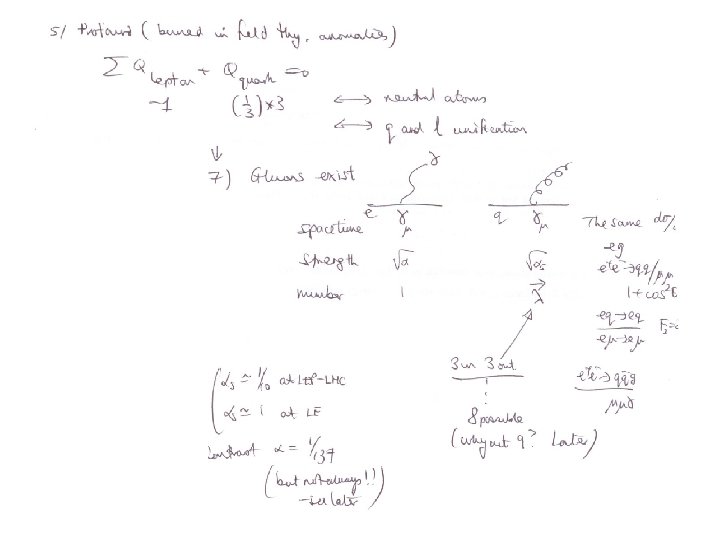 5/ Profound (buried in field thy, anomalies)
∑ Q lepton + Q quark = 0
-1 (1/3)*3 ↔ neutral atoms
↔ q and l unification
⇓
7) Gluons exist
γ
e γμ q γμ
spacetime The same
strength √α √αs
number 1 λ
eg
e+e-→qq̄/μμ
1+cos²
eq→eq
eμ→eμ
3 in 3 out
e+e-→qq̄g
μμγ
8 possible
(why not 9? Later)
αs ≃ 1/10 at LEP-LHC
αs ≃ 1 at LE
Contrast α = 1/137
(but not always!!
-see later)